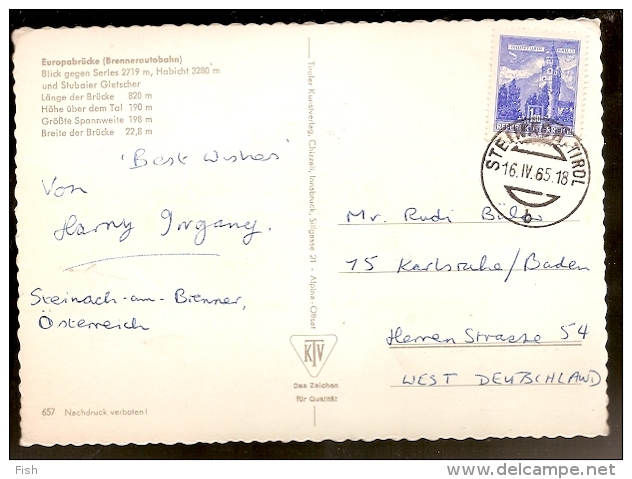 Europabrücke (Brennerautobahn)
Blick gegen Serles 2719 m, Habicht 3280 m
und Stubaier Gletscher
Länge der Brücke 820 m
Höhe über dem Tal 190 m
Größte Spannweite 198 m
Breite der Brücke 22,8 m
'Best Wishes'
Von
Harry Irgang.
Steinach-am-Brenner,
Österreich
657 Nachdruck verboten!
Tiroler Kunstverlag, Chizzali, Innsbruck, Sillgasse 21 - Alpina-Offset
KTV
Das Zeichen
für Qualität
STEINACH, TIROL
16.IV.65.18
b
Mr. Rudi
75 Karlsruhe/Baden
Herren Strasse 54
WEST DEUTSCHLAND
Fish
www.delcampe.net